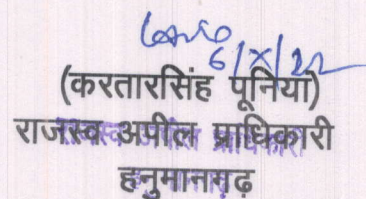 6/X/22
(करतारसिंह पूनिया)
राजस्व अपील प्राधिकारी
हनुमानगढ़